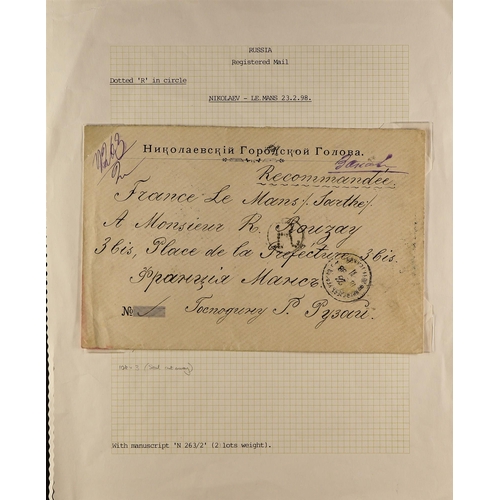 RUSSIA
Registered Mail
Dotted 'R' in circle
NIKOLAEV - LE MANS 23.2.98.
N263/2
Николаевскій Городской Голова.
Заказ
Recommandée.
France Le Mans /Sarthe/.
A Monsieur R. Rouzay
R
3 bis, Place de la Préfecture, 3 bis.
Франція Мансъ
№ Господину Г. Рузай.
With manuscript 'N 263/2' (2 lots weight).